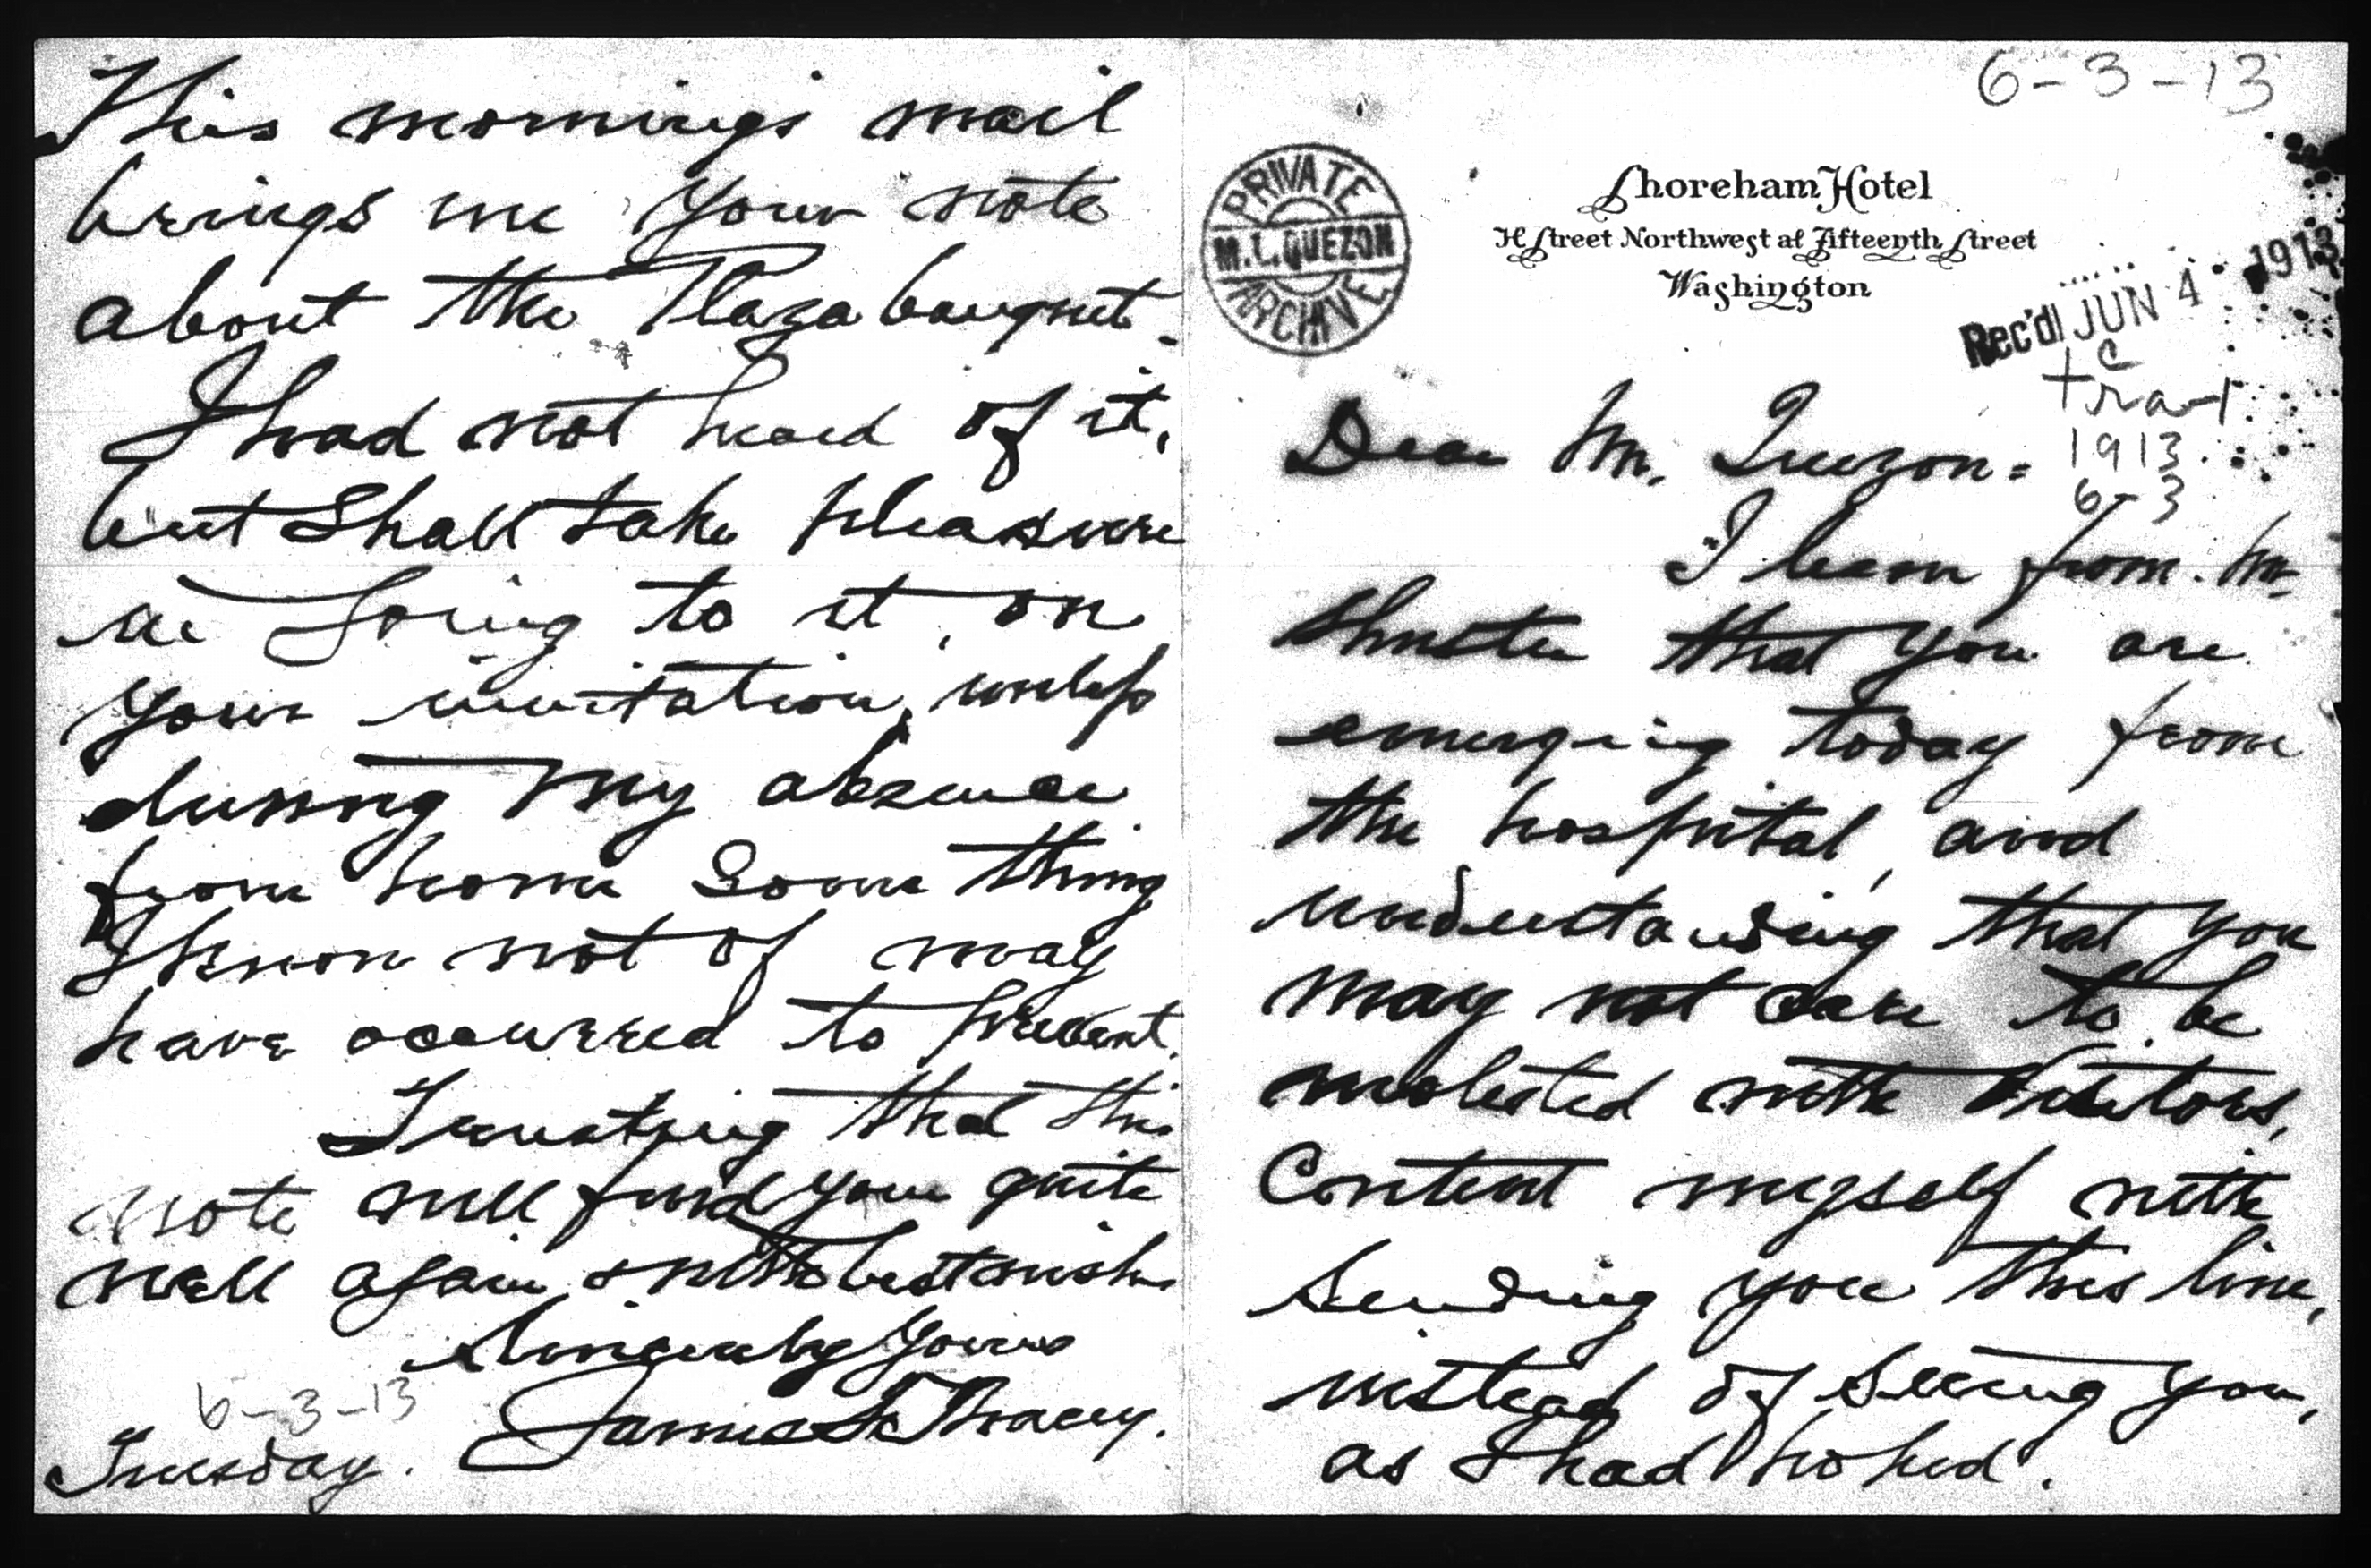 6-3-13
PRIVATE
M.L. QUEZON
ARCHIVE
Shoreham Hotel
H Street Northwest at Fifteenth Street
Washington
Rec'd JUN 4 1913
1913
6-3
Dear Mr. Quezon =
I learn from Mr.
Shuster that you are
emerging today from
the hospital, and
understanding that you
may not care to be
molested with visitors,
Content myself with
sending you this line,
instead of seeing you,
as I had hoped.
This mornings mail
brings me your note
about the Plaza banquet.
I had not heard of it,
but shall take pleasure
in going to it, on
your invitation, unless
during my absence
from home some thing
I know not of may
have occurred to prevent.
Trusting that this
note will find you quite
well again & with best wishes
Sincerely yours
James Tracey.
6-3-13
Tuesday.